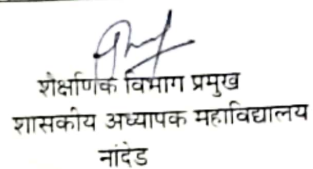 शैक्षणिक विभाग प्रमुख
शासकीय अध्यापक महाविद्यालय
नांदेड